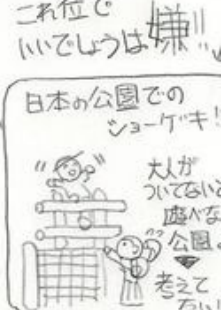 これ位で
いいでしょうは嫌!!
日本の公園での
ショーゲキ!
大人が
ついてないと
遊べな
公園。
考えて